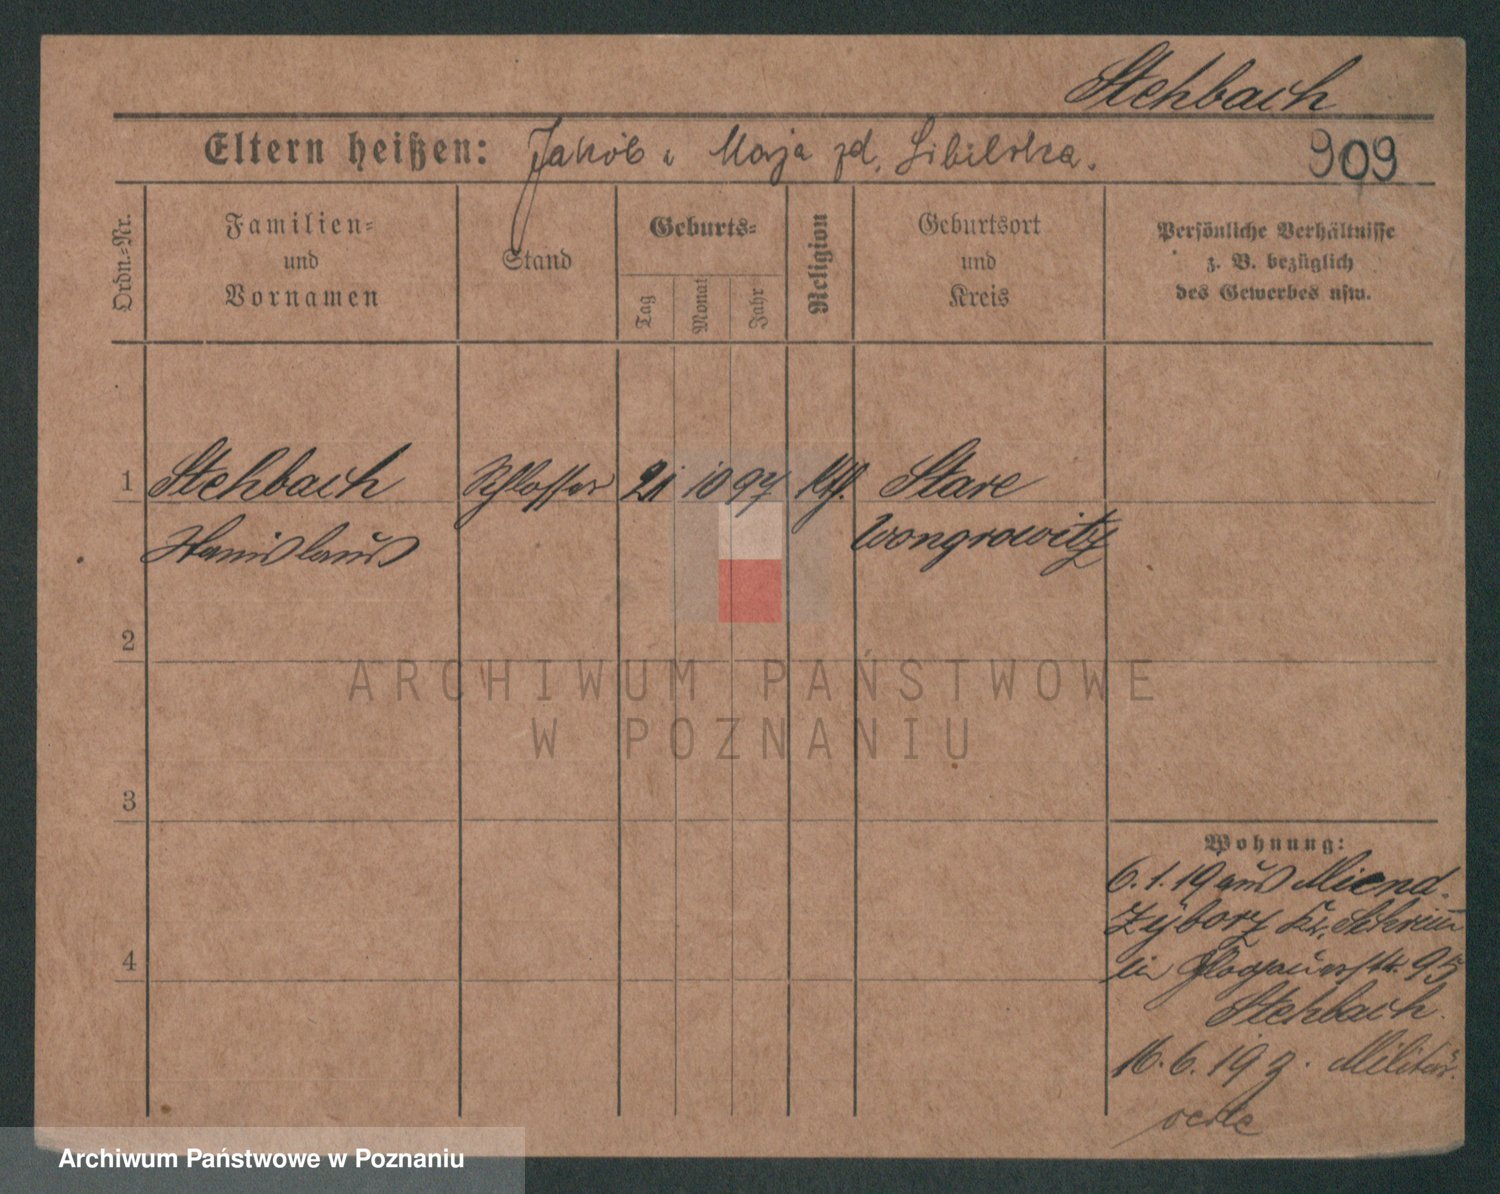 Stehbach
Eltern heißen: Jakób i Marja zd. Sibilska.
909
Ordn.-Nr.
Familien-
und
Vornamen
Stand
Geburts-
Tag
Monat
Jahr
Religion
Geburtsort
und
Kreis
Persönliche Verhältnisse
z. B. bezüglich
des Gewerbes usw.
1 Stehbach Schlosser 21 10 97 kth. Stare
Stanislaus Wongrowitz
2
3
4
Wohnung:
6.1.19 aus Miend-
Zyborz Kr. Schrimm
in Glogauerstr. 95
Stehbach.
16.6.19 z. Militär.
ARCHIWUM PAŃSTWOWE
W POZNANIU
Archiwum Państwowe w Poznaniu